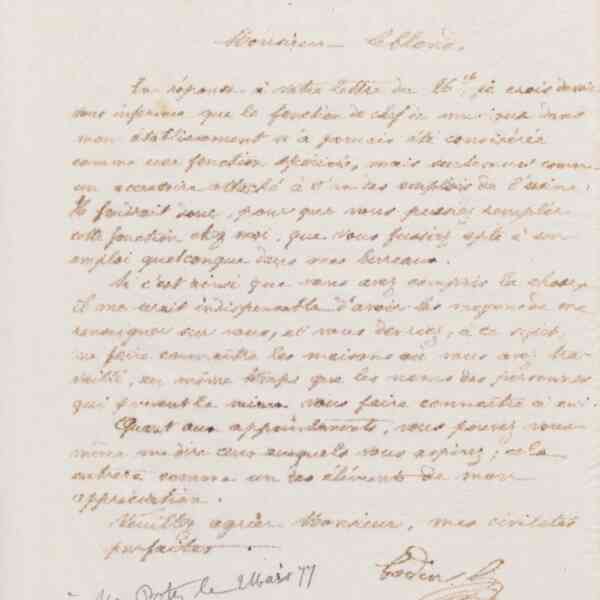 Monsieur Leblond,
En réponse à votre lettre du 26 ct je crois devoir
vous informer que la fonction de chef de musique dans
mon établissement n'a jamais été considérée
comme une fonction spéciale, mais seulement comme
un accessoire attaché à l'un des emplois de l'usine.
Il faudrait donc, pour que vous puissiez remplir
cette fonction chez moi, que vous fussiez apte à un
emploi quelconque dans mes bureaux.
Si c'est ainsi que vous avez compris la chose,
il me serait indispensable d'avoir les moyens de me
renseigner sur vous, et vous devriez, à ce sujet,
me faire connaître les maisons où vous avez tra-
vaillé, en même temps que les noms des personnes
qui peuvent le mieux vous faire connaître à moi.
Quant aux appointements, vous pouvez vous-
même me dire ceux auxquels vous aspirez ; cela
entrera comme un des éléments de mon
appréciation.
Veuillez agréer Monsieur, mes civilités
parfaites.
Godin
le 2 Mars 77